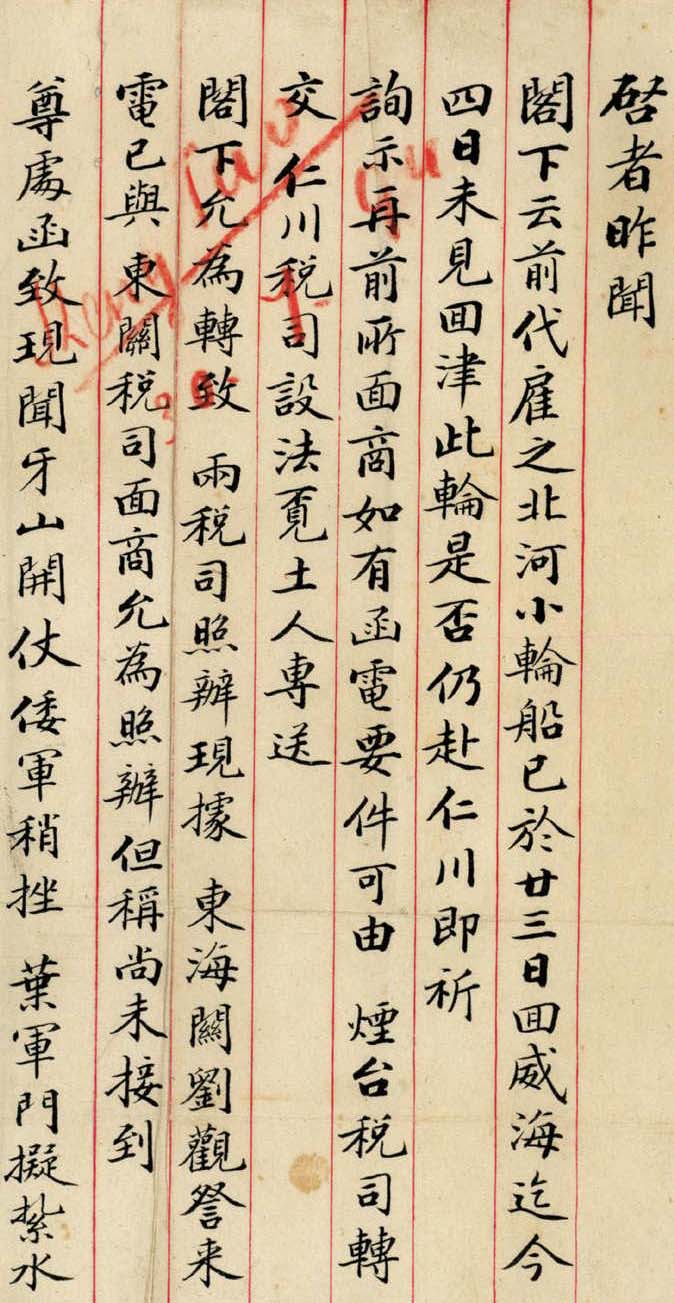 啓者昨聞
閣下云前代雇之北河小輪船已於廿三日回威海迄今
四日未見回津此輪是否仍赴仁川即祈
詢示再前所面商如有函電要件可由 煙台稅司轉
交 仁川稅司設法覔土人專送
閣下允為轉致 兩稅司照辦現據 東海關劉觀詧来
電已與東關稅司面商允為照辦但稱尚未接到
尊處函致現聞牙山開仗倭軍稍挫 葉軍門擬紮水